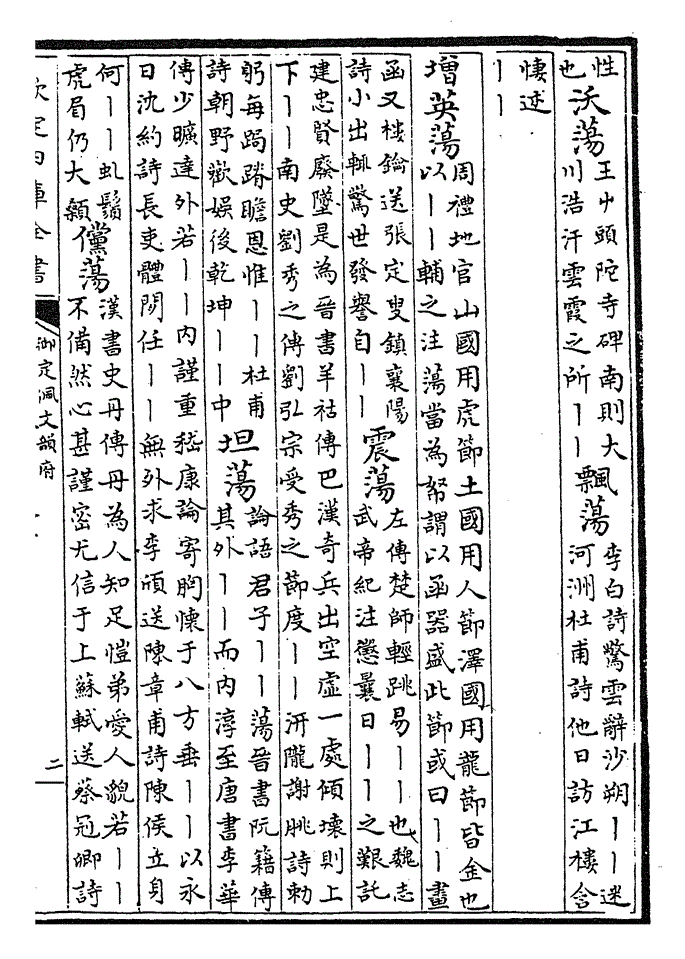 性
也沃蕩王屮頭陀寺碑南則大
川浩汗雲霞之所丨丨飄蕩李白詩驚雲辭沙朔丨丨迷
河洲杜甫詩他日訪江樓含
悽述
丨丨
增英蕩周禮地官山國用虎節土國用人節澤國用龍節皆金也
以丨丨輔之注蕩當為帑謂以函器盛此節或曰丨丨畫
函又樓鑰送張定叟鎮襄陽
詩小出軓驚世發譽自丨丨震蕩左傳楚師輕跳易丨丨也魏志
武帝紀注懲曩日丨丨之艱託
建忠賢廢墜是為晉書羊祜傳巴漢奇兵出空虛一處傾壞則上
下丨丨南史劉秀之傳劉弘宗受秀之節度丨丨汧隴謝朓詩勅
躬每跼蹐瞻恩惟丨丨杜甫
詩朝野歡娛後乾坤丨丨中坦蕩論語君子丨丨蕩晉書阮籍傳
其外丨丨而内淳至唐書李華
傳少曠達外若丨丨内謹重嵇康論寄胸懷于八方垂丨丨以永
日沈約詩長吏體閒任丨丨無外求李頎送陳章甫詩陳侯立身
何丨丨虬鬚
虎眉仍大顙儻蕩漢書史丹傳丹為人知足愷弟愛人貌若丨丨
不備然心甚謹密尤信于上蘇軾送蔡冠卿詩
欽定四庫全書
御定佩文韻府
二